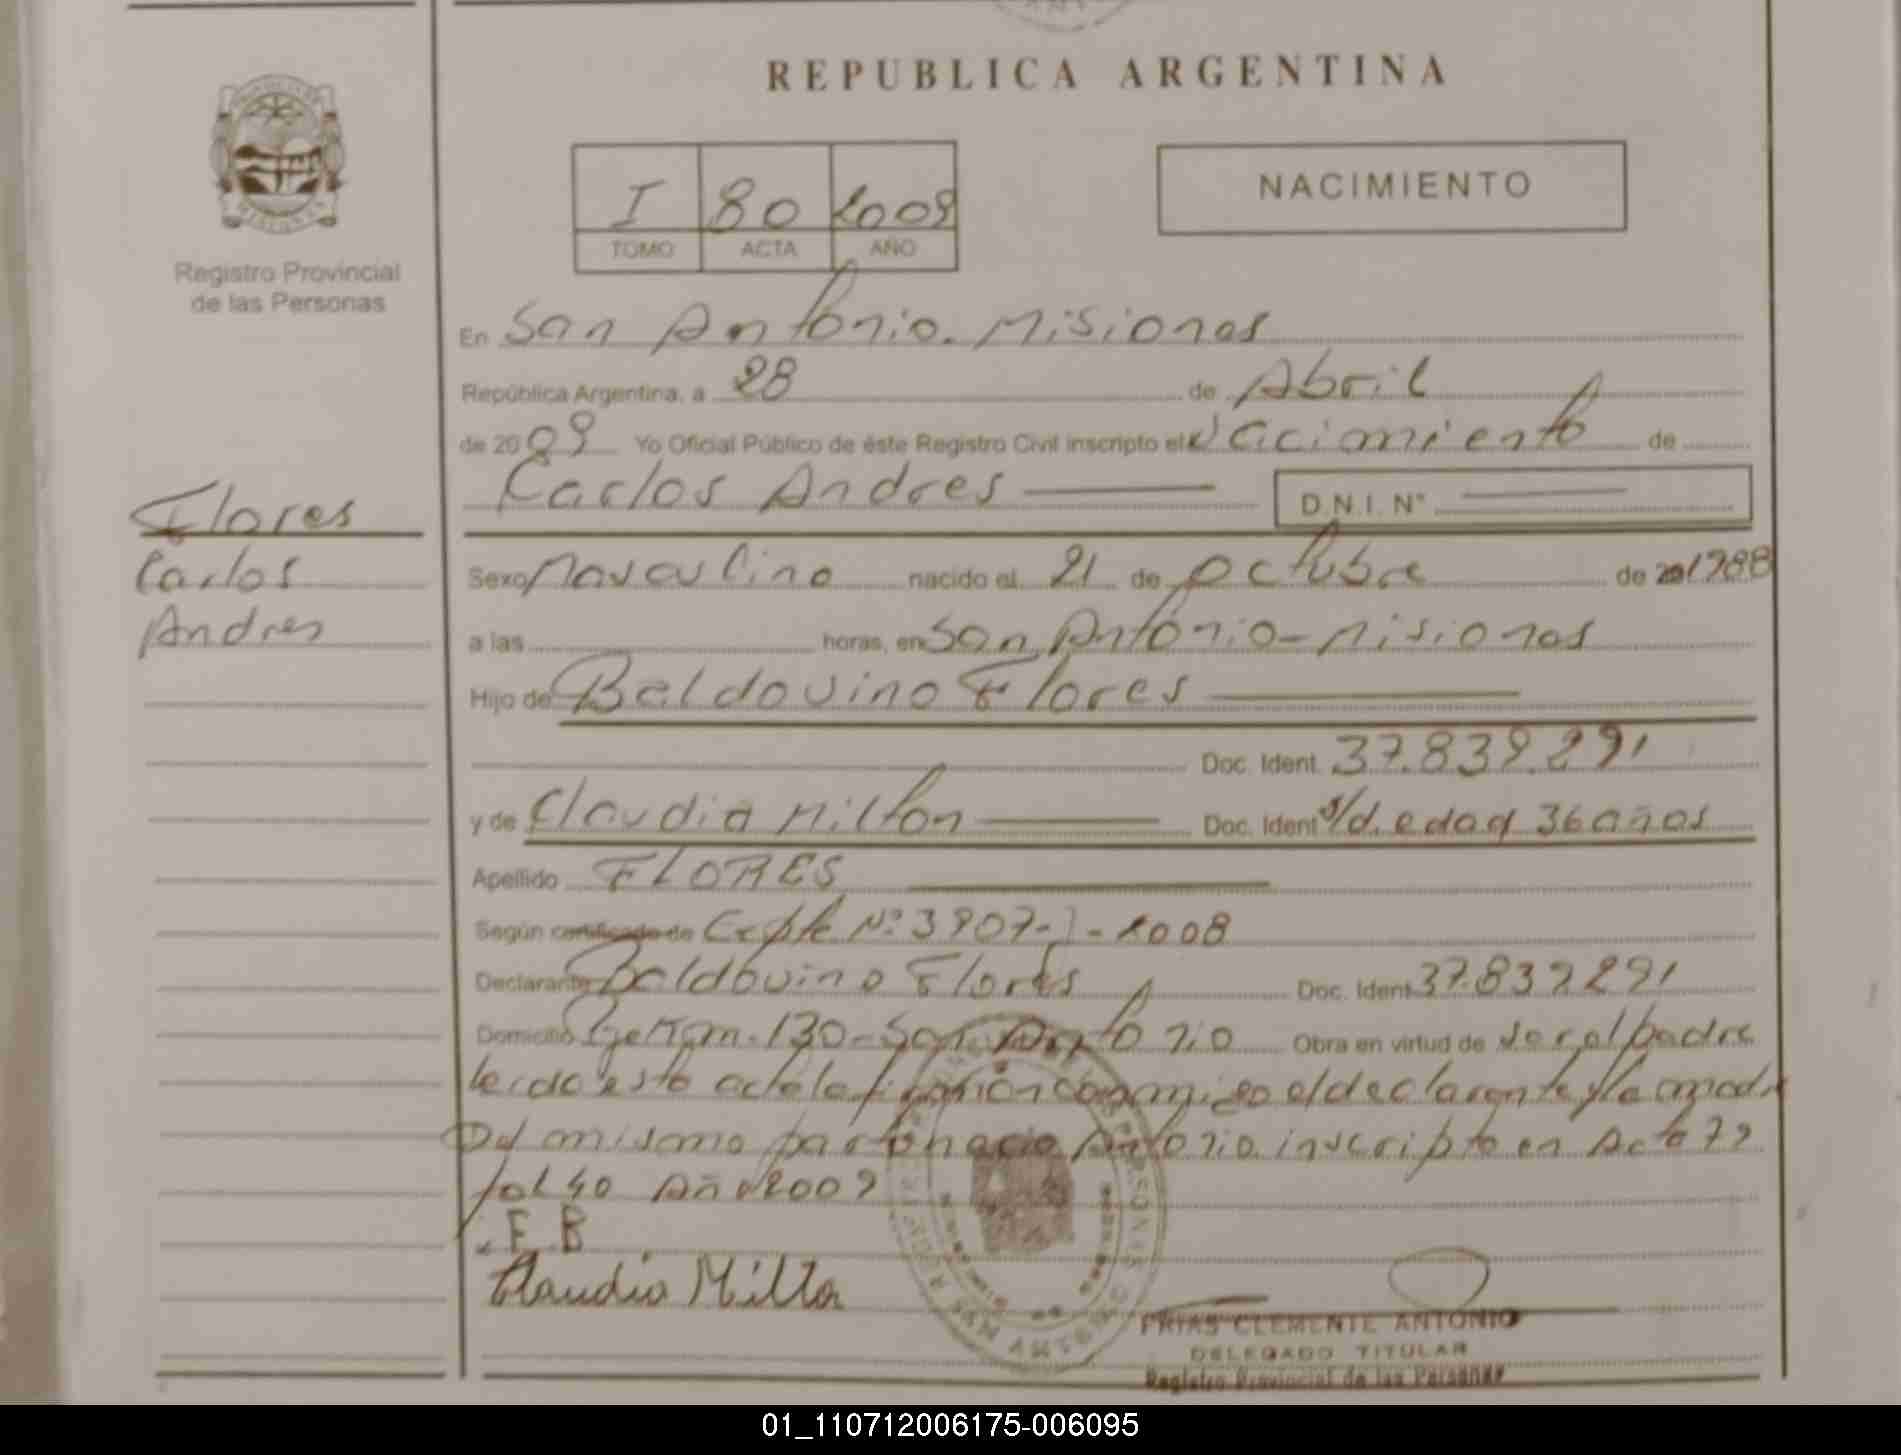 REPUBLICA ARGENTINA
I 80 2009
TOMO ACTA AÑO
NACIMIENTO
Registro Provincial
de las Personas
En San Antonio. Misiones
República Argentina, a 28 de Abril
de 2009 Yo Oficial Público de éste Registro Civil inscripto el Nacimiento de
Carlos Andres
D.N.I. N°
Flores
Carlos
Andres
Sexo Masculino nacido el 21 de Octubre de 20 1988
a las horas, en San Antonio - Misiones
Hijo de Baldovino Flores
Doc. Ident. 37.839.291
y de Claudia Milton Doc. Ident s/d. edad 36 años
Apellido FLORES
Según certificado de Expte Nº 3907- - 2008
Declarante Baldovino Flores Doc. Ident 37.839291
Domicilio Km. 130 - San Antonio Obra en virtud de ser al padre
leida esta acta la conmigo el declarante y la
Del mismo parto nacio Antonio inscripto en Acta 79
fol 40 Año 2009
F B
Claudia Milton
FRIAS CLEMENTE ANTONIO
DELEGADO TITULAR
Registro Provincial de las Personas
01_110712006175-006095